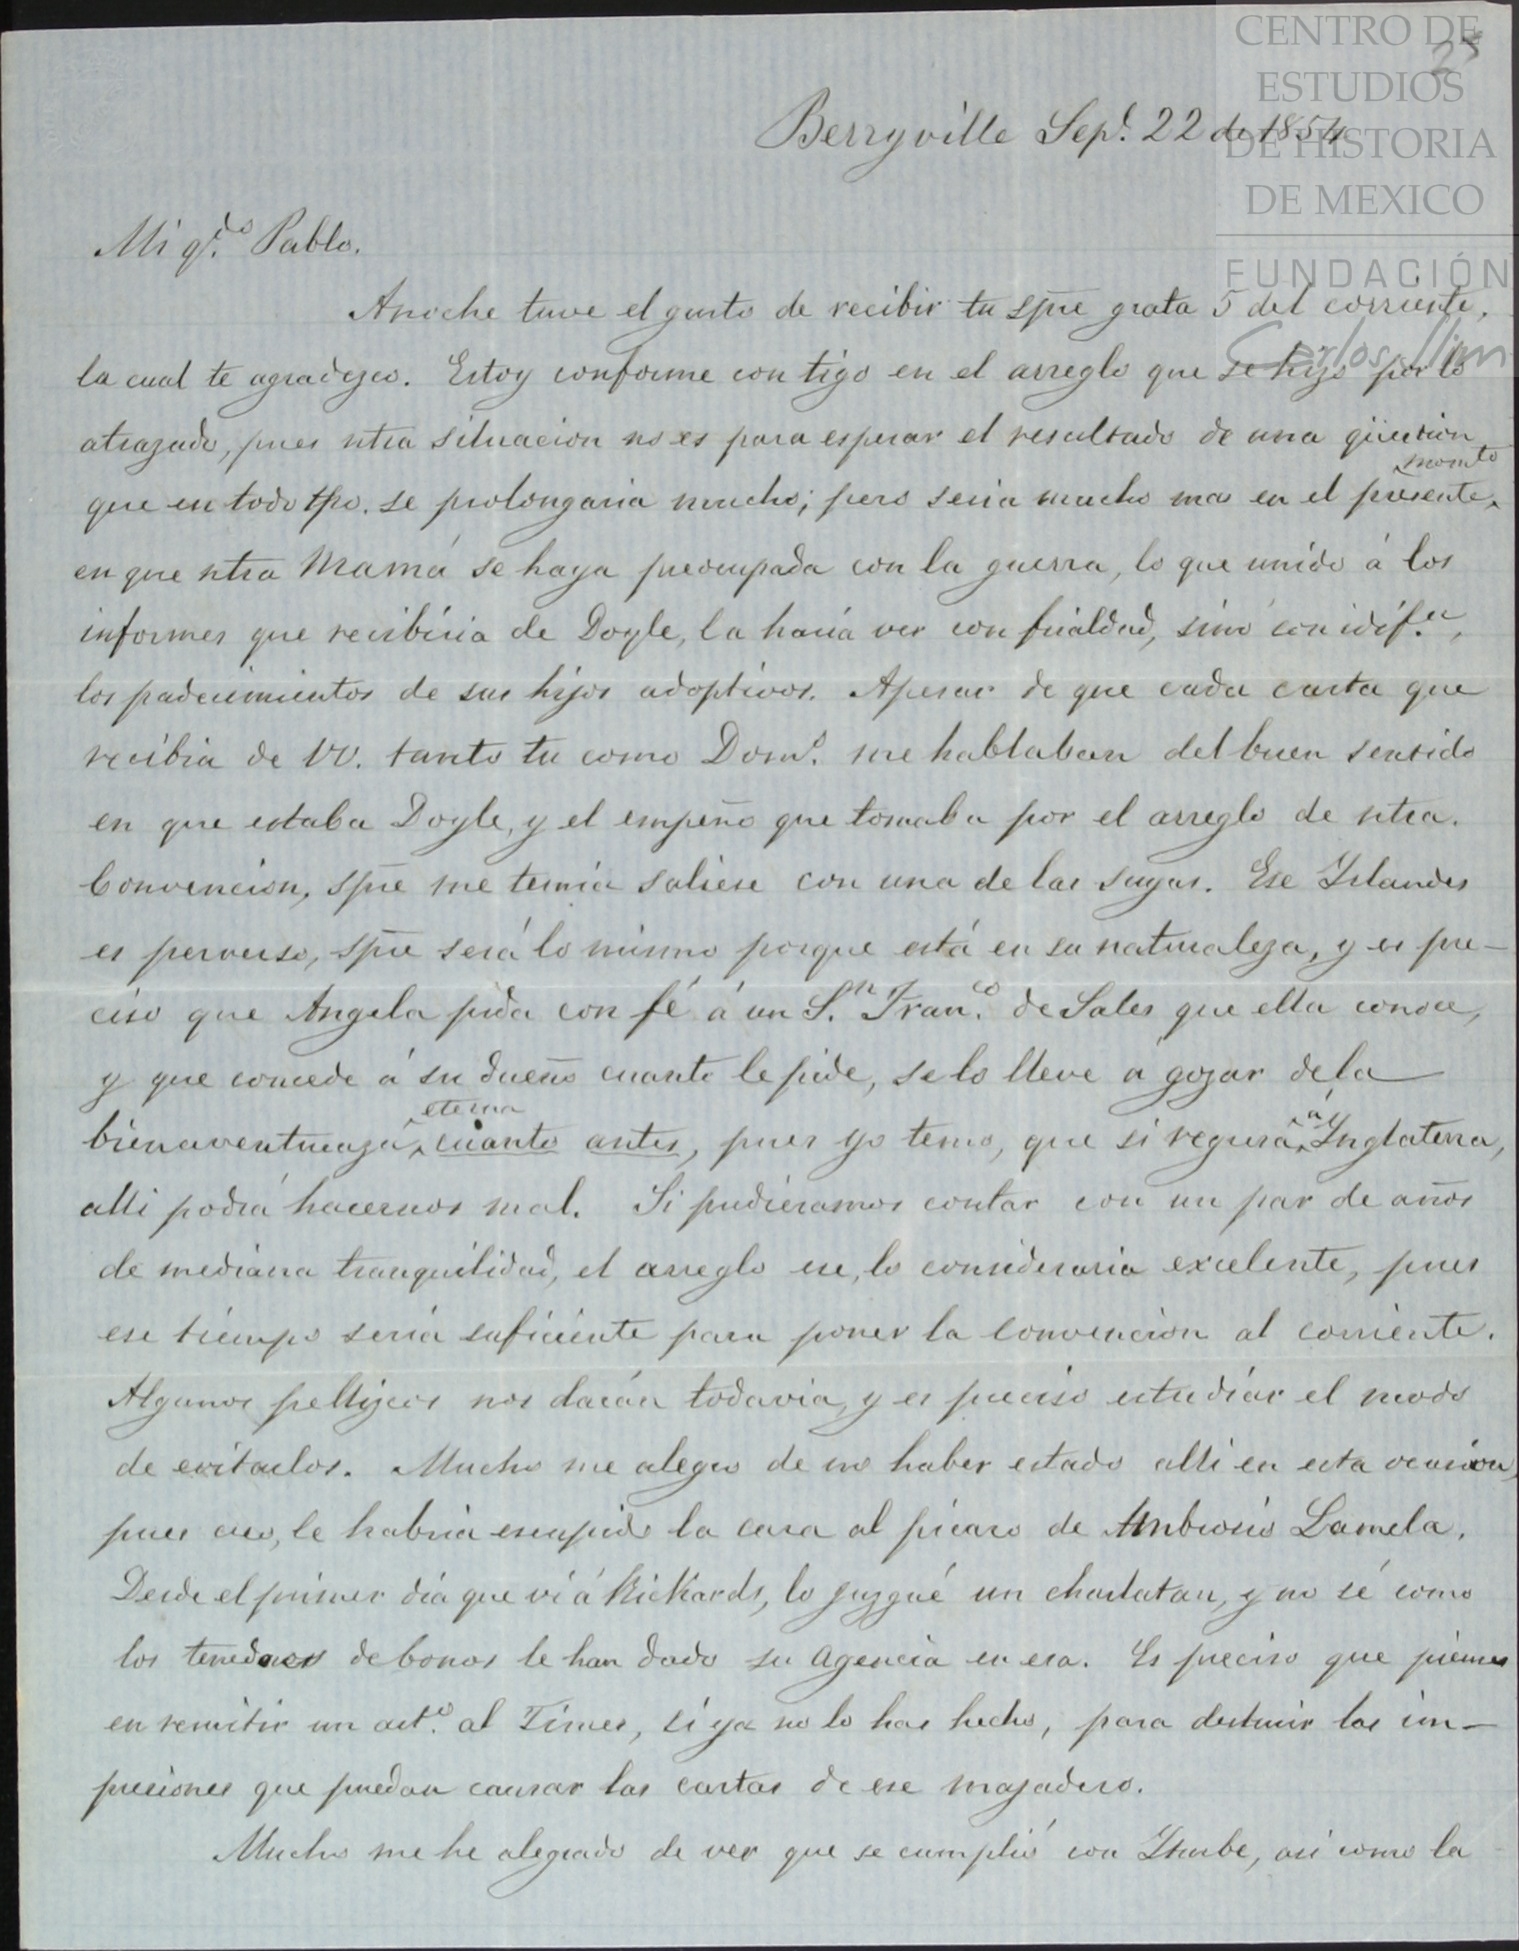 CENTRO DE
ESTUDIOS
DE HISTORIA
DE MEXICO
FUNDACIÓN
Carlos Slim
25
Berryville Sepe. 22 de 1854
Mi qdo. Pablo.
Anoche tuve el gusto de recibir tu spre grata 5 del corriente,
la cual te agradezco. Estoy conforme con tigo en el arreglo que se hizo por lo
atrazado, pues ntra situacion no es para esperar el resultado de una qüestion
que en todo tpo. se prolongaria mucho; pero seria mucho mas en el presente momto
en que ntra Mamá se haya preocupada con la guerra, lo que unido á los
informes que recibiria de Doyle, la haria ver con frialdad, sinó con idifa.,
los padecimientos de sus hijos adoptivos. Apesar de que cada carta que
recibia de VV. tanto tu como Domo. me hablaban del buen sentido
en que estaba Doyle, y el empeño que tomaba por el arreglo de ntra.
Convencion, spre me temia saliese con una de las suyas. Ese Yslandes
es perverso, spre será lo mismo porque está en su naturaleza, y es pre-
ciso que Angela pida con fé á un Sn. Franco. de Sales que ella conoce,
y que concede á su dueño cuanto le pide, se lo lleve á gozar de la
bienaventuraza eterna cuanto antes, pues yo temo, que si regresa á Ynglaterra,
alli podrá hacernos mal. Si pudieramos contar con un par de años
de mediana tranquilidad, el arreglo ese, lo consideraria excelente, pues
ese tiempo seria suficiente para poner la convencion al corriente.
Algunos pellizcos nos darán todavia, y es preciso estudiar el modo
de evitarlos. Mucho me alegro de no haber estado alli en esta ocasion,
pues creo, le habria escupido la cara al picaro de Ambrosio Lamela.
Desde el primer dia que vi á Rickards, lo juzgué un charlatan, y no sé como
los tenedores de bonos le han dado su agencia en esa. Es preciso que pienses
en remitir un arto. al Times, si ya no lo has hecho, para destruir las im-
presiones que puedan causar las cartas de ese majadero.
Mucho me he alegrado de ver que se cumplió con Yturbe, asi como la